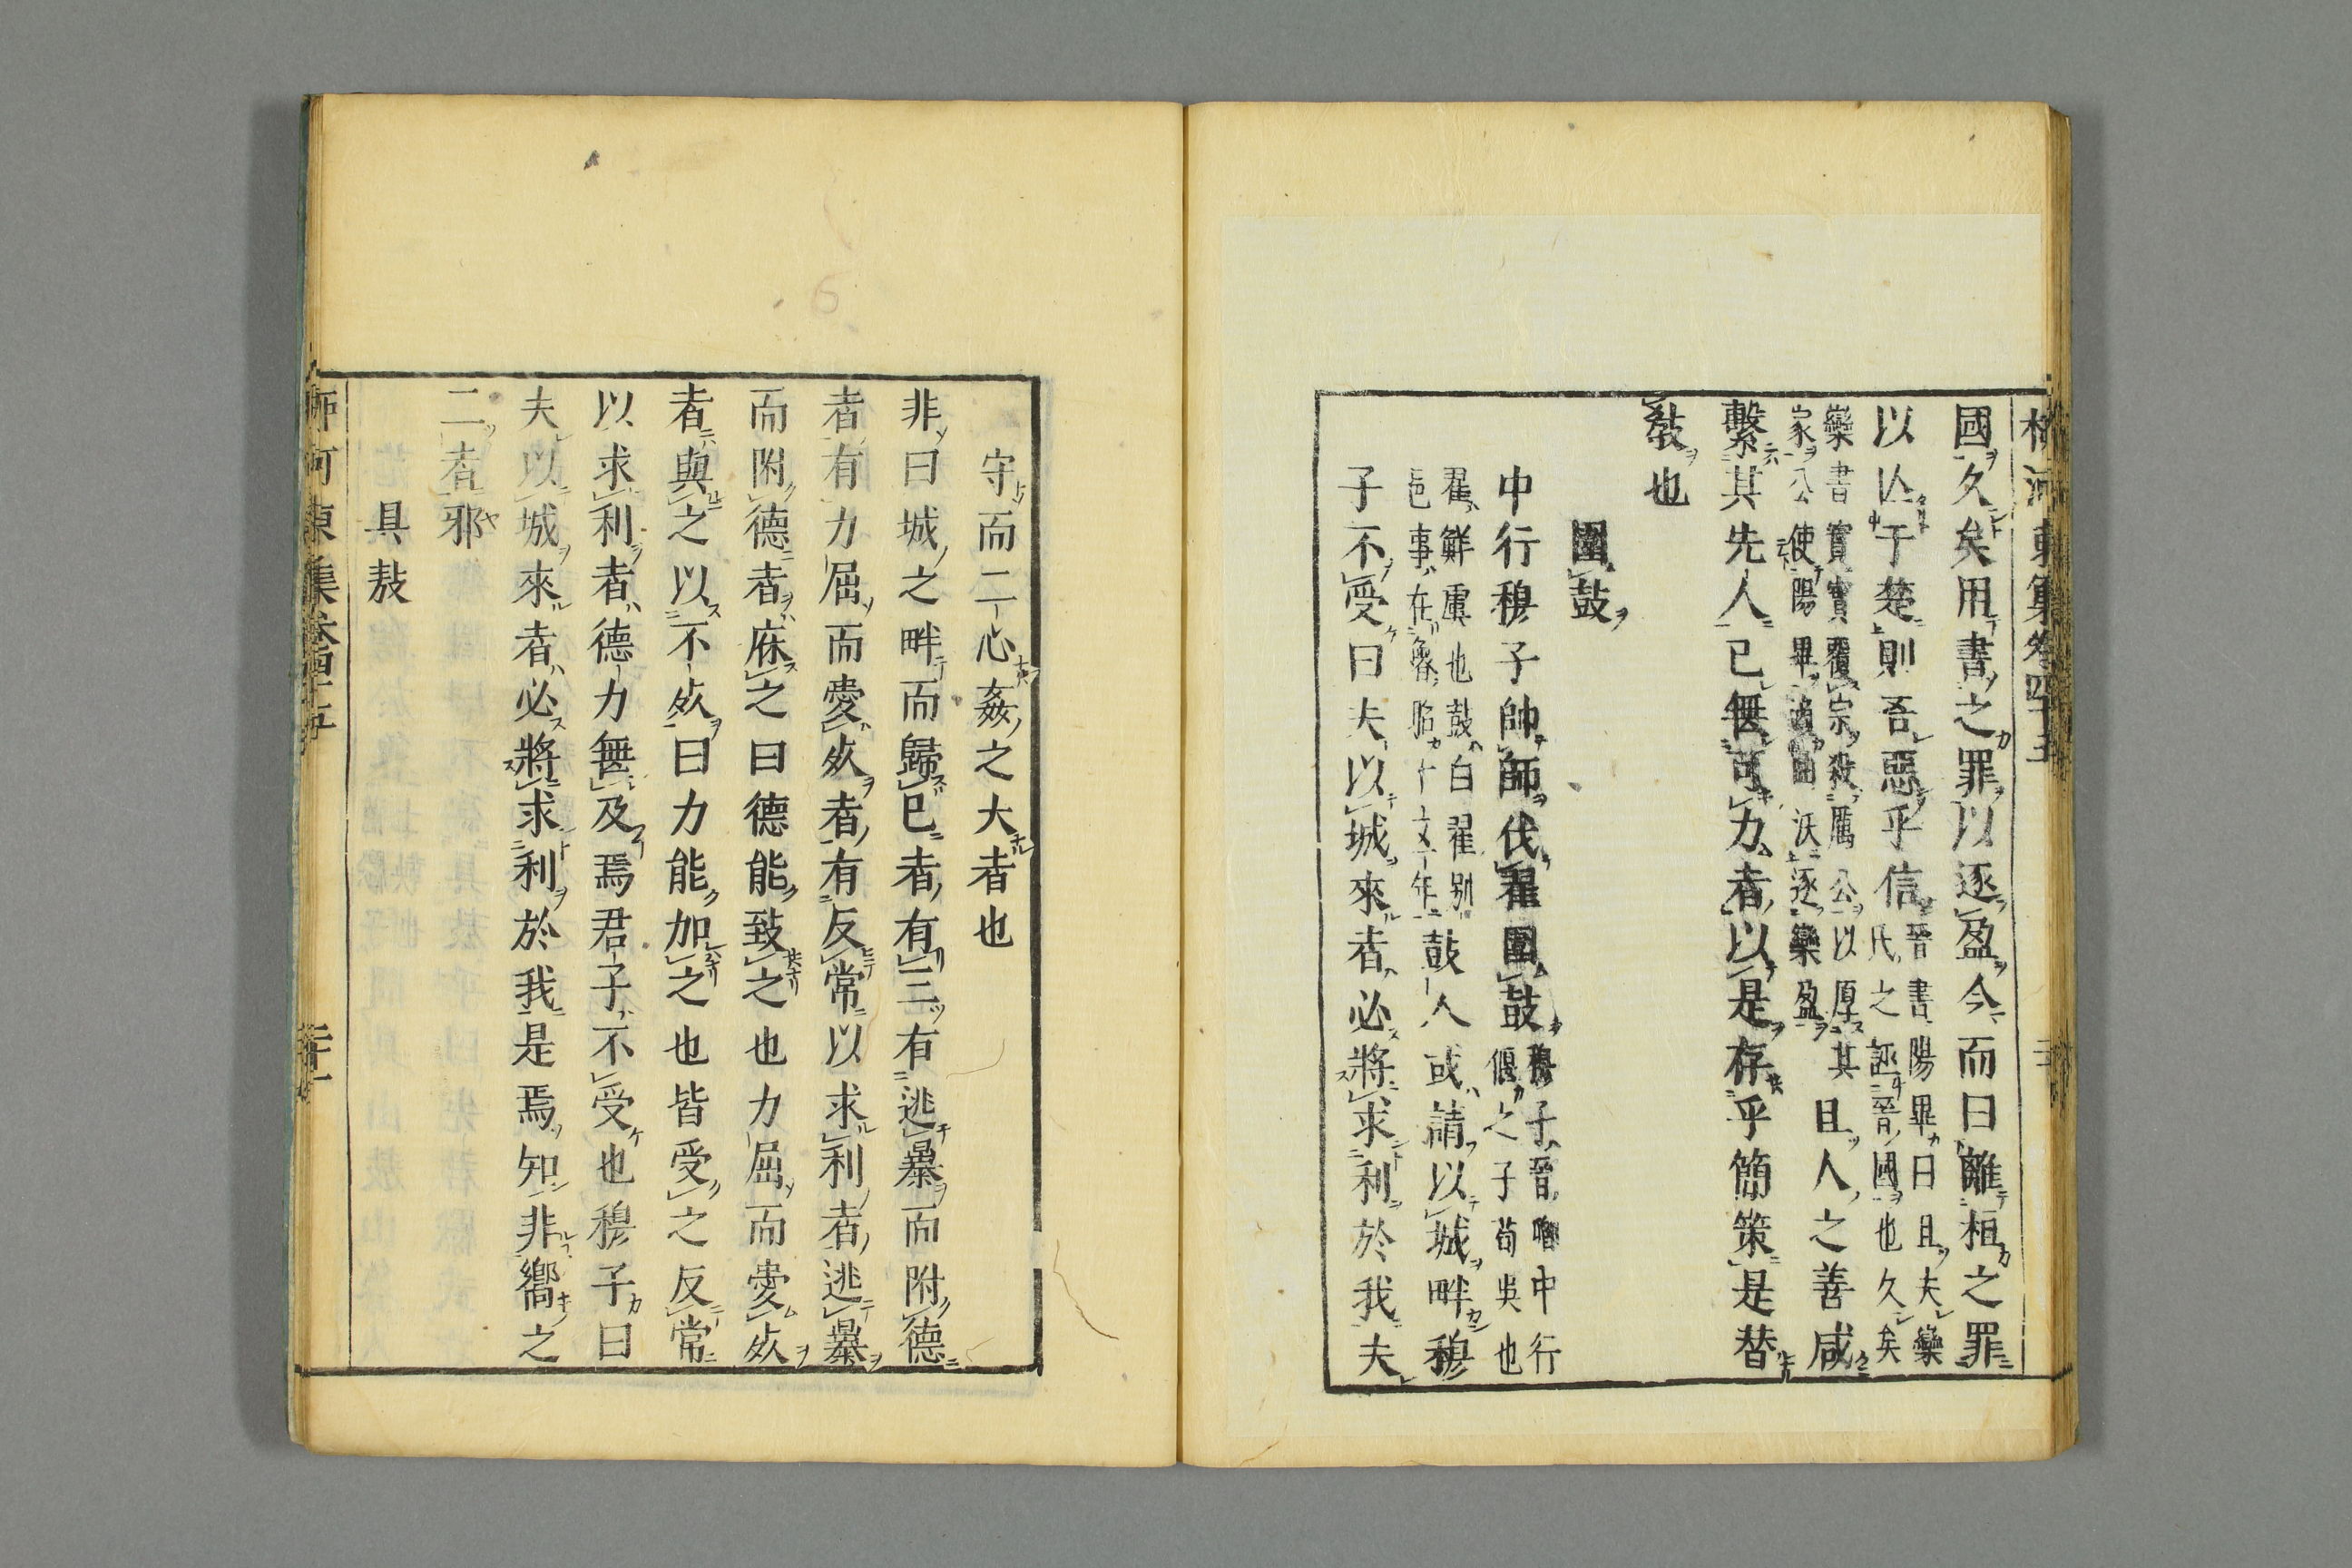 柳河東集卷四十五
國久矣用書之罪以逐盈今而曰離桓之罪
以亾于楚則吾惡乎信晉書陽畢曰且夫欒
氏之誣晉國也久矣
欒書實實覆宗殺厲公以厚其
家公使陽畢適曲沃逐欒盈且人之善咸
繫其先人已無可力者以是存乎簡策是替
敎也
圍鼓
中行穆子帥師伐翟圍鼓穆子晉卿中行
偃之子荀吳也
翟鮮虞也鼓白翟别
邑事在魯昭十五年鼓人或請以城畔穆
子不受曰夫以城來者必將求利於我夫
守而二心姦之大者也
非曰城之畔而歸已者有三有逃暴而附德
者有力屈而愛死者有反常以求利者逃暴
而附德者庥之曰德能致之也力屈而愛死
者與之以不死曰力能加之也皆受之反常
以求利者德力無及焉君子不受也穆子曰
夫以城來者必將求利於我是焉知非嚮之
二者邪
具敖
柳河東集卷四十五 二十一